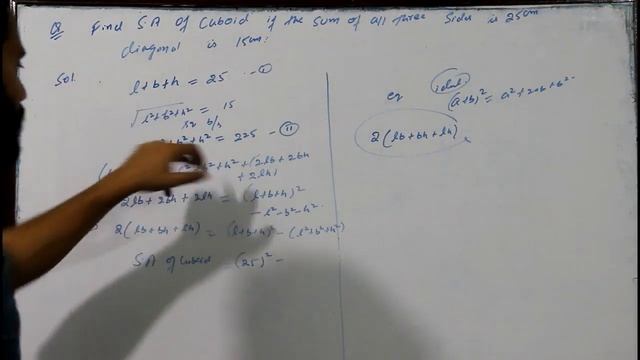 Q Find SA of Cuboid if the sum of all three sides is 25cm
diagonal is 15cm.
Sol.
l+b+h = 25 - ①
√l²+b²+h² = 15
sq b/s
+h² = 225 - ②
+h² + (2lb+2bh
+ 2lh)
2lb + 2bh + 2lh = (l+b+h)²
- l² - b² - h²
2(lb+bh+lh) = (l+b+h)² - (l²+b²+h²)
SA of Cuboid = (25)² -
(a+b)² = a² + 2ab + b²
2(lb+bh+lh)